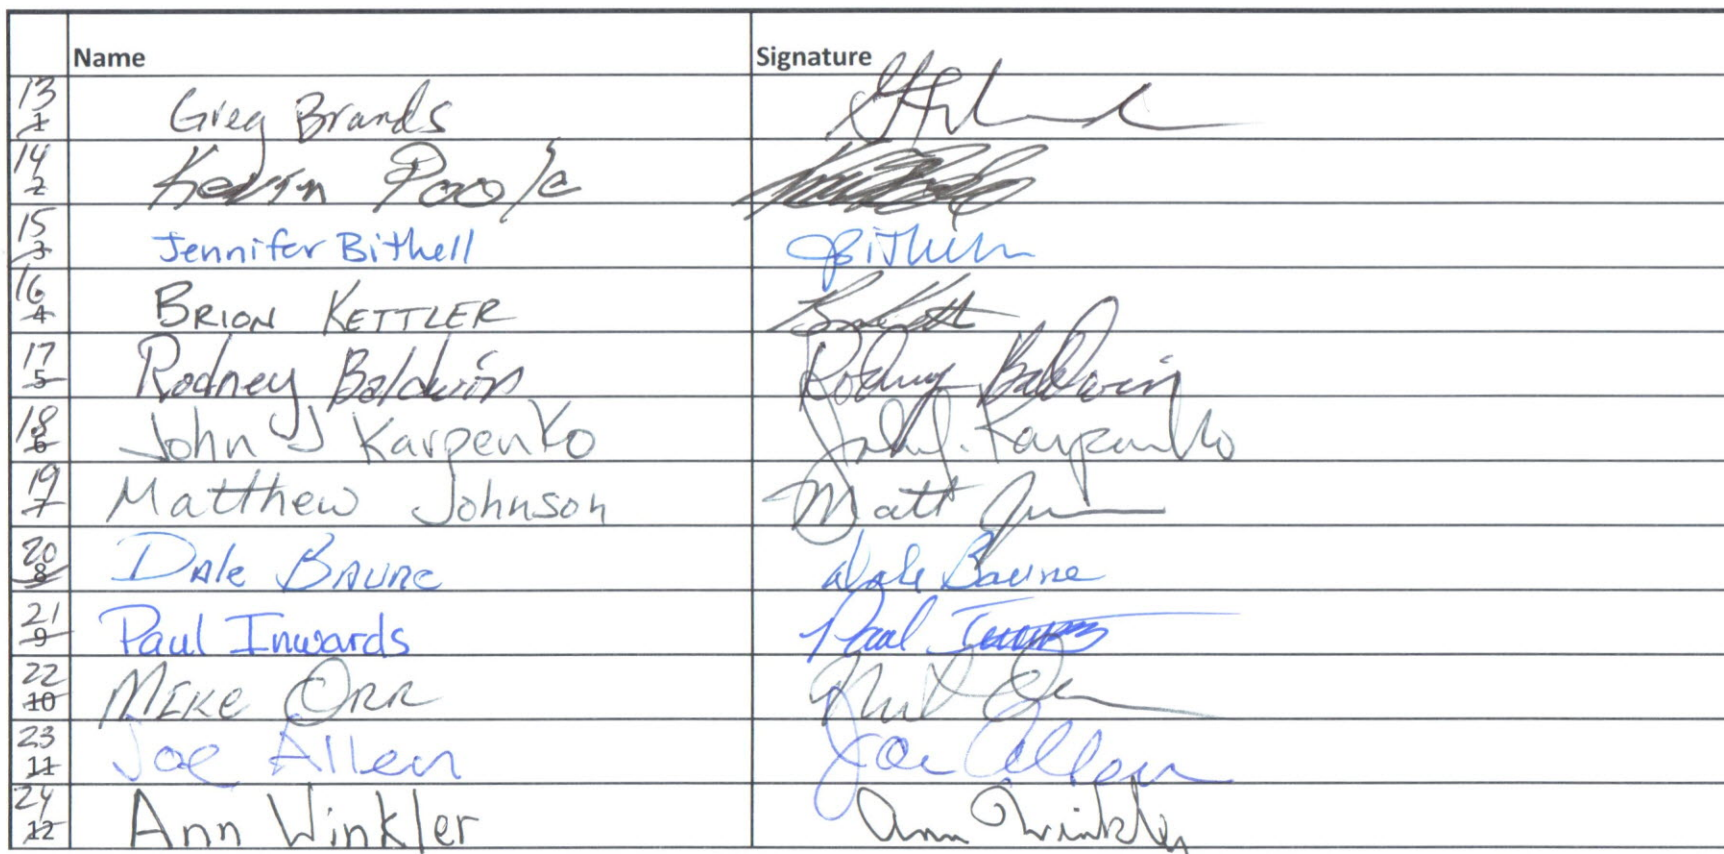 Name Signature
13 1 Greg Brands
14 2 Kevin Poole
15 3 Jennifer Bithell JBithell
16 4 BRION KETTLER
17 5 Rodney Baldwin Rodney Baldwin
18 6 John J Karpenko John J. Karpenko
19 7 Matthew Johnson Matt
20 8 Dale Baune Dale Baune
21 9 Paul Inwards Paul
22 10 MIKE ORR
23 11 Joe Allen Joe Allen
24 12 Ann Winkler Ann Winkler